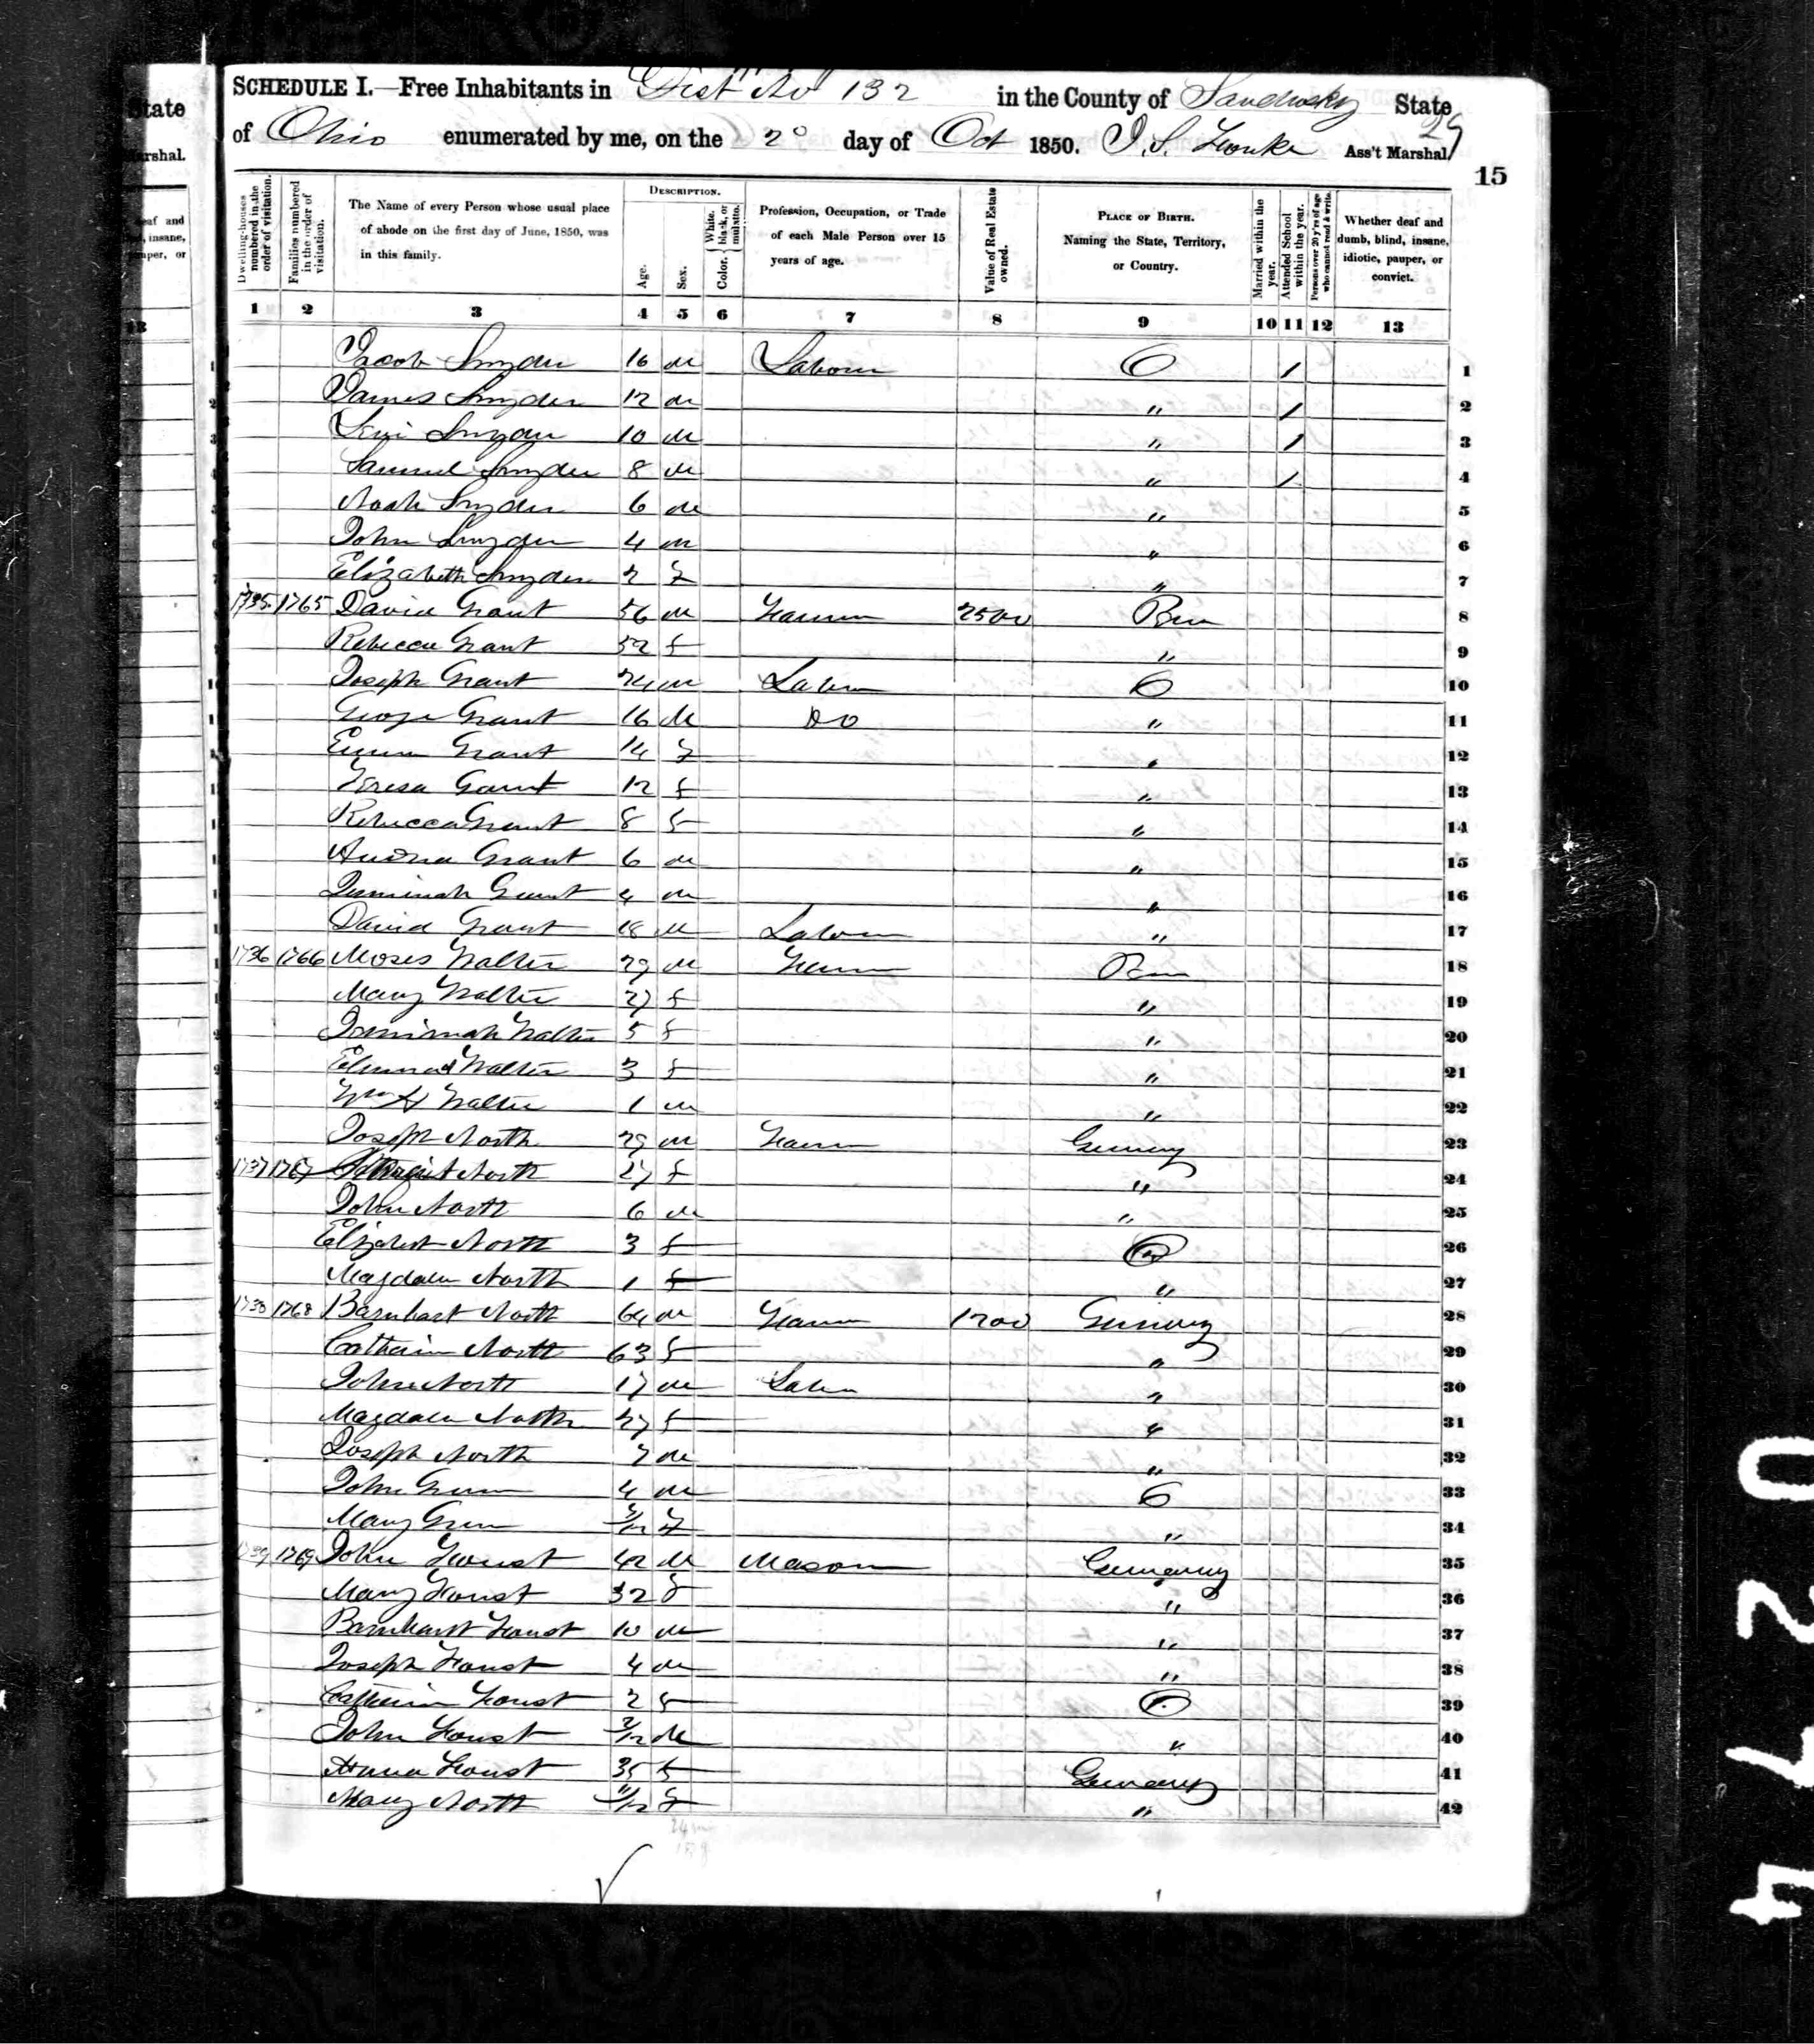 State
Marshal.
deaf and
insane,
pauper, or
13
SCHEDULE I.—Free Inhabitants in Dist No 132 in the County of Sandusky State
of Ohio enumerated by me, on the 2° day of Oct 1850. Ass't Marshal
29
15
Dwelling-houses numbered in the order of visitation.
Families numbered in the order of visitation.
The Name of every Person whose usual place of abode on the first day of June, 1850, was in this family.
DESCRIPTION.
Age.
Sex.
Color. White, black, or mulatto.
Profession, Occupation, or Trade of each Male Person over 15 years of age.
Value of Real Estate owned.
PLACE OF BIRTH. Naming the State, Territory, or Country.
Married within the year.
Attended School within the year.
Persons over 20 y'rs of age who cannot read & write.
Whether deaf and dumb, blind, insane, idiotic, pauper, or convict.
1 2 3 4 5 6 7 8 9 10 11 12 13
Jacob Snyder 16 M Laborer O / 1
James Snyder 12 M " / 2
Levi Snyder 10 M " / 3
Samuel Snyder 8 M " / 4
Noah Snyder 6 M " 5
John Snyder 4 M " 6
Elizabeth Snyder 2 F " 7
1735 1765 David Grant 56 M Farmer 2500 Pen 8
Rebecca Grant 52 F " 9
Joseph Grant 24 M Labor O 10
George Grant 16 M Do " 11
Grant 14 F " 12
Teresa Grant 12 F " 13
Rebecca Grant 8 F " 14
Grant 6 M " 15
Jemimah Grant 4 M " 16
David Grant 18 M Labor " 17
1736 1766 Moses Walter 29 M Farmer Pen 18
Mary Walter 27 F " 19
Jemimah Walter 5 F " 20
Walter 3 F " 21
Wm H Walter 1 M " 22
Joseph North 29 M Farmer Germany 23
1737 1767 North 27 F " 24
John North 6 M " 25
Elizabeth North 3 F O 26
Magdalen North 1 F " 27
1738 1768 Barnhart North 64 M Farmer 1200 Germany 28
Catharin North 63 F " 29
John North 17 M Labor " 30
Magdalen North 27 F " 31
Joseph North 7 M " 32
John Green 4 M O 33
Mary Green 3/12 F " 34
1739 1769 John Foust 42 M Mason Germany 35
Mary Foust 32 F " 36
Barnhart Foust 10 M " 37
Joseph Foust 4 M " 38
Catharin Foust 2 F O 39
John Foust 2/12 M " 40
Anna Foust 35 F Germany 41
Mary North 11/12 F " 42